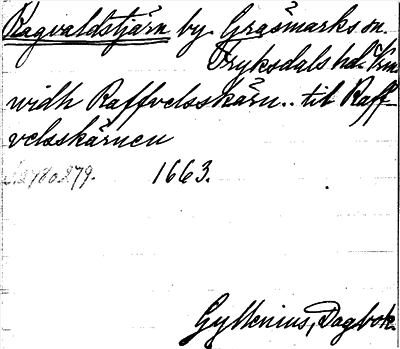 Ragvaldstjärn by Gräsmarks sn.
Fryksdals hd. Vrm
widh Raffvelsskärn.. til Raff-
velsskärnen
S. 278 o 279. 1663.
Gyllenius, Dagbok.